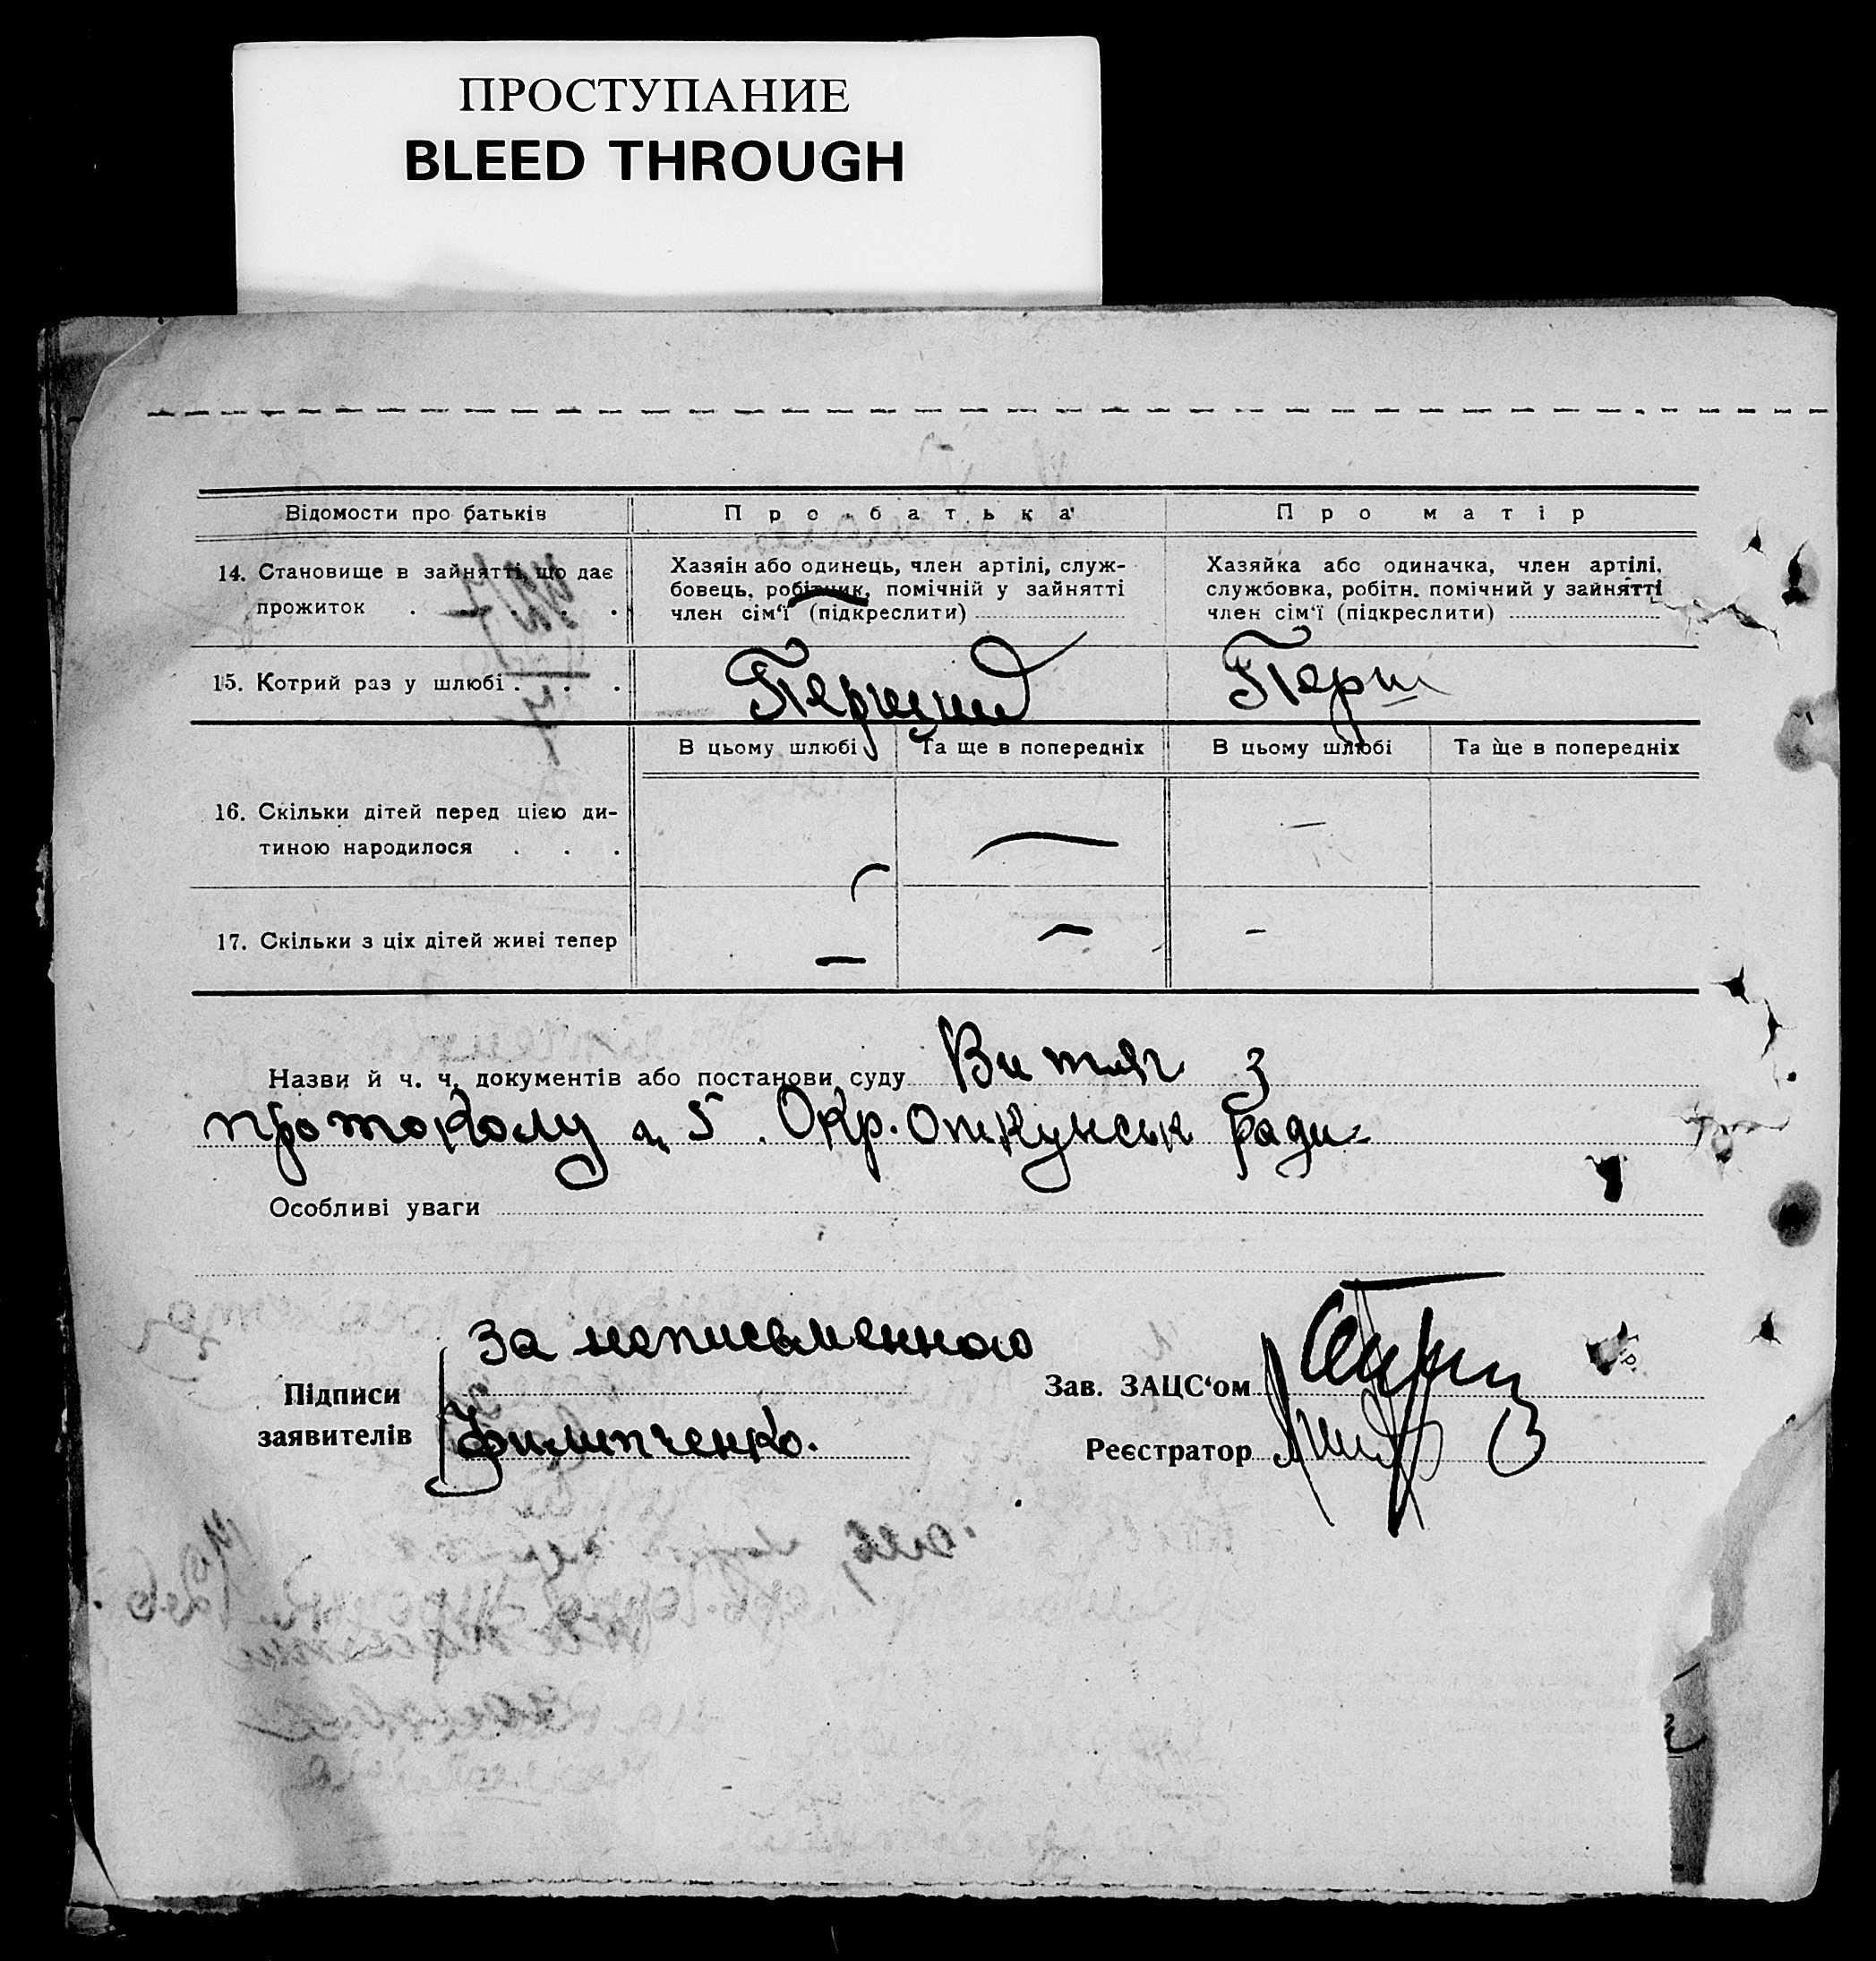 ПРОСТУПАНИЕ
BLEED THROUGH
Відомости про батьків
Про батька
Про матір
14. Становище в зайнятті, що дає
прожиток . . . .
Хазяін або одинець, член артілі, служ-
бовець, робітник, помічній у зайнятті
член сім'ї (підкреслити)
Хазяйка або одиначка, член артілі,
службовка, робітн. помічний у зайнятті
член сім'ї (підкреслити)
15. Котрий раз у шлюбі . . .
Перший
Перш
В цьому шлюбі
Та ще в попередніх
В цьому шлюбі
Та ще в попередніх
16. Скільки дітей перед цією ди-
тиною народилося . . .
— — —
17. Скільки з ціх дітей живі тепер
— — —
Назви й ч. ч. документів або постанови суду Витяг з
протоколу 5. Окр. ради
Особливі уваги
За неписьменною
Підписи
заявителів
Филипченко.
Зав. ЗАЦС'ом
Реєстратор